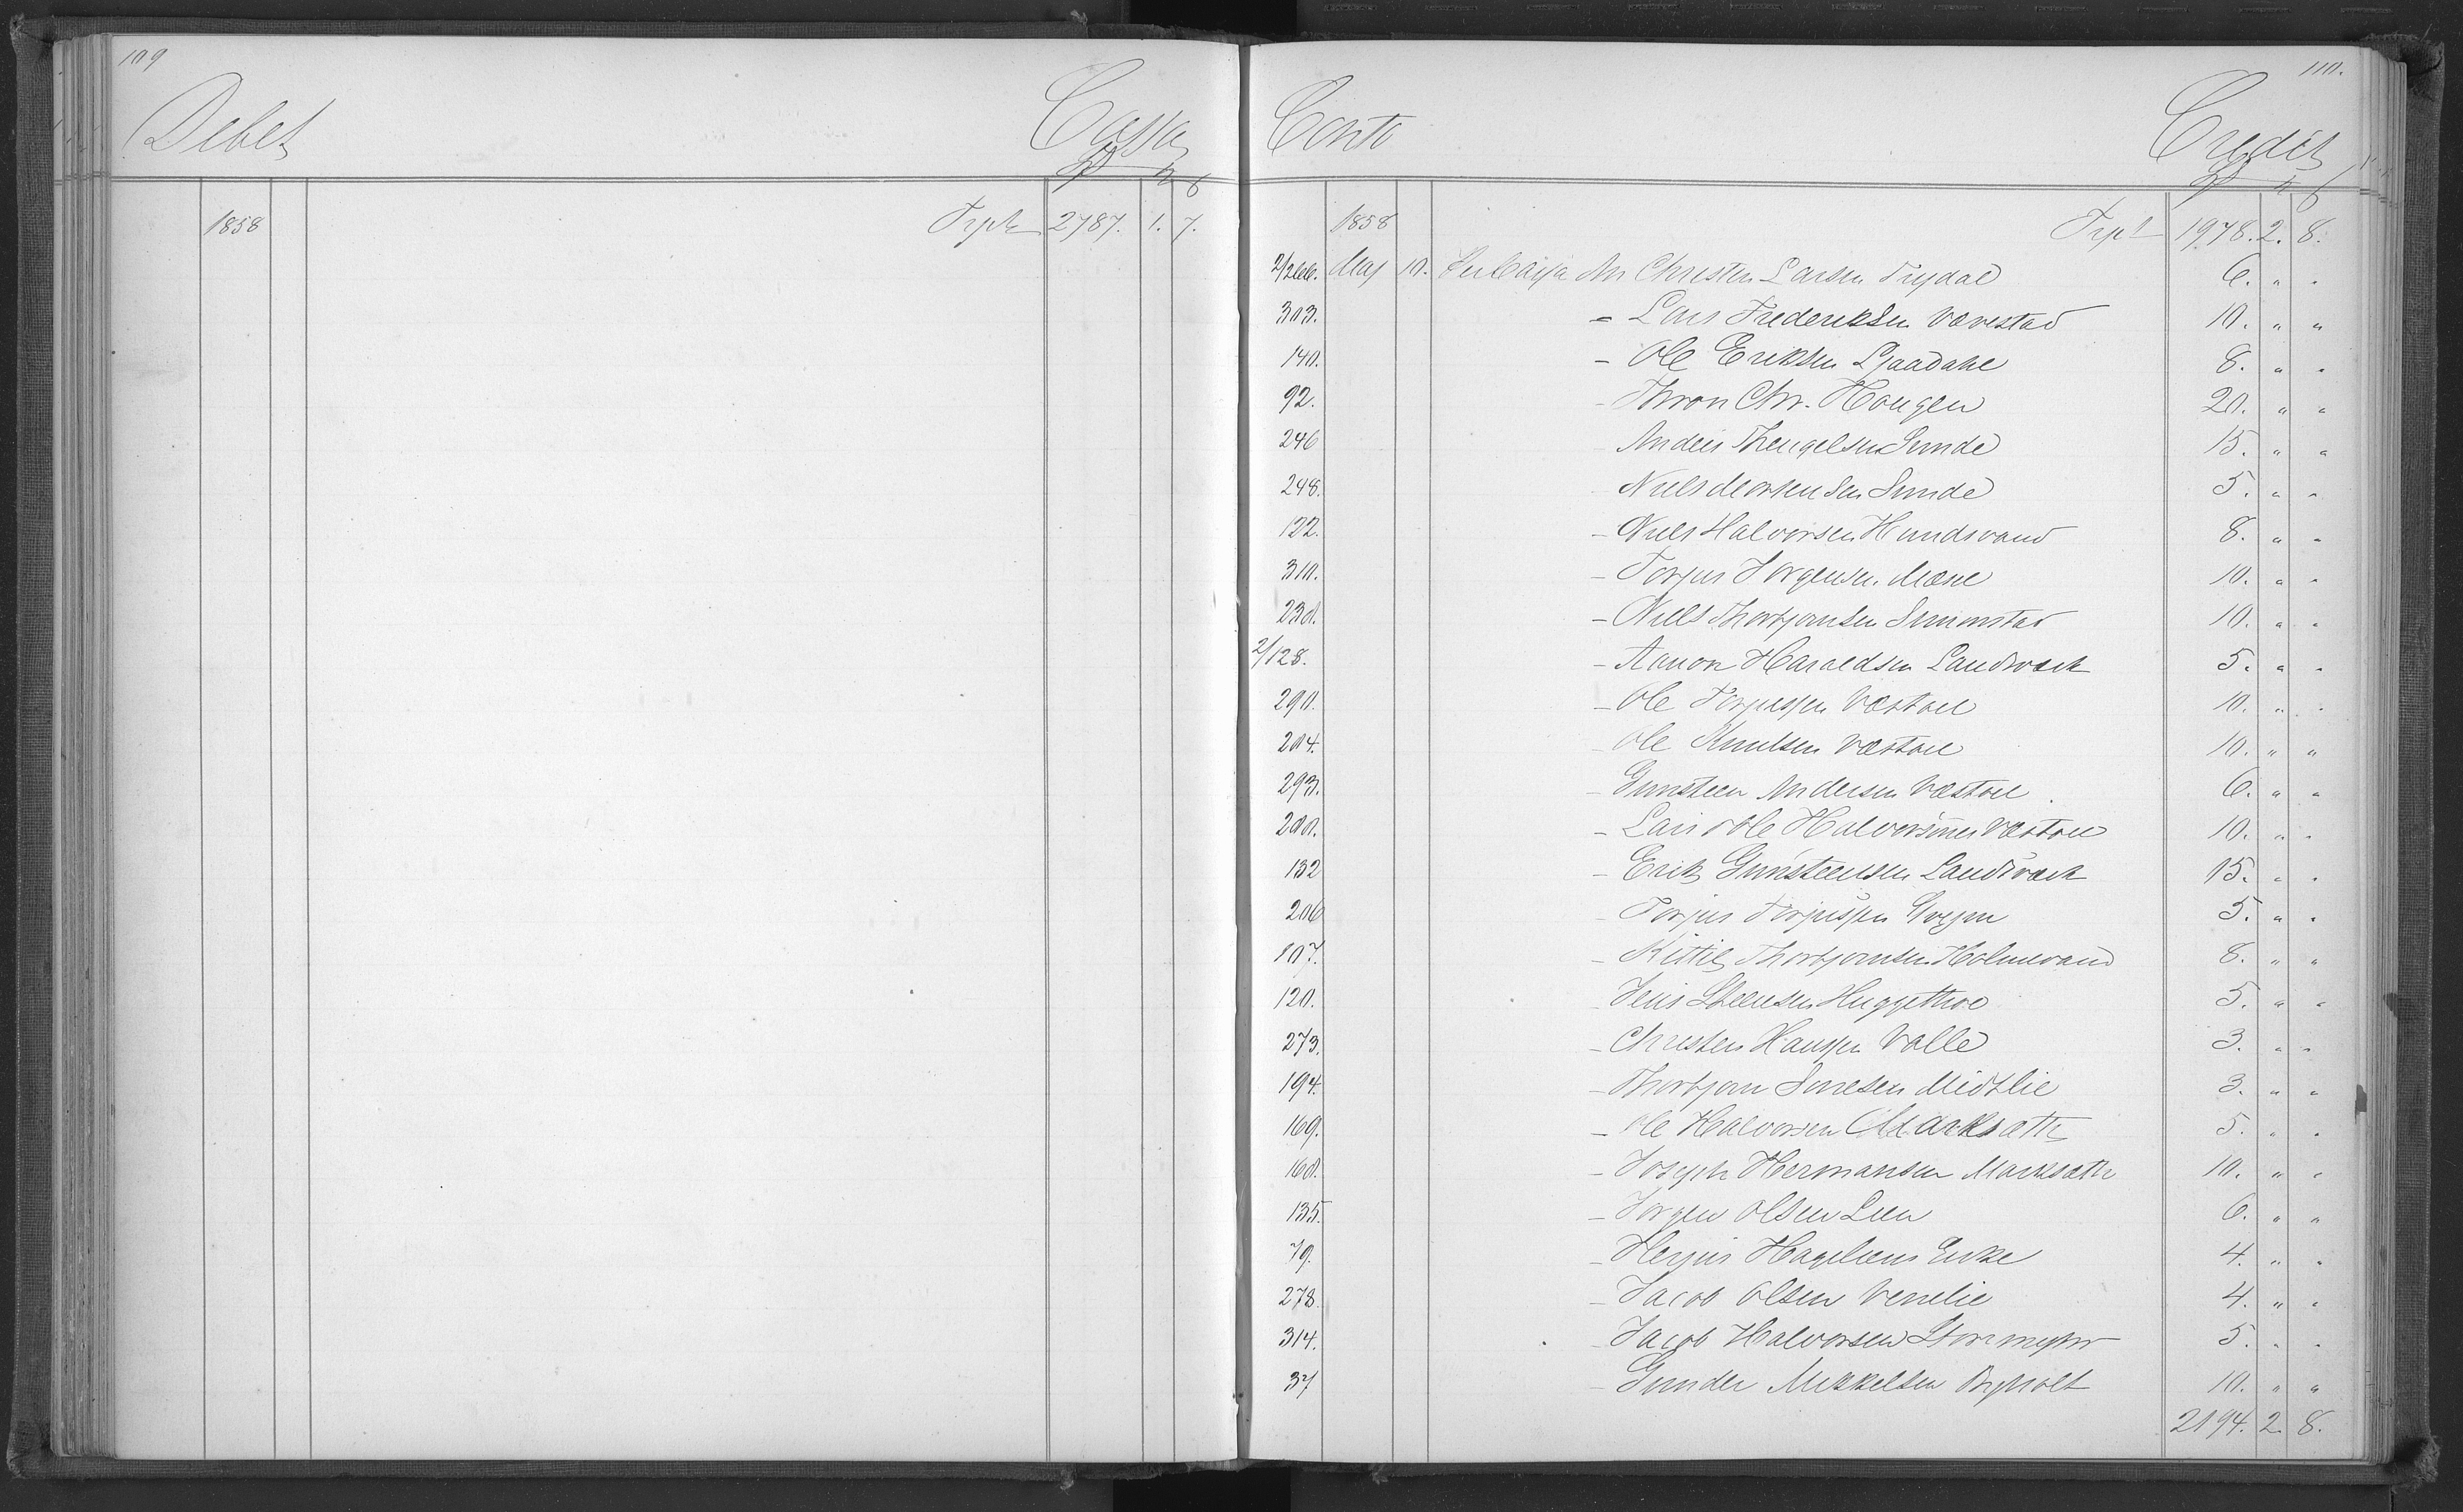 109
Debet
Cassa
1858 Trpt 2787. 1. 7.
110.
Conto
Credit
1858 Trpt 1978. 2. 8.
2/266. Maj 10. Per Cassa An Christen Larsen Trydal 6. " "
303. - Lars Frederiksen Vævestad 10. " "
140. - Ole Eriksen 8. " "
92. - Thron Chr. Hougen 20. " "
246 - Anders Thengelsen Sunde 15. " "
248. - Niels Mortensen Sunde 5. " "
122. - Niels Halvorsen Hundsvand 8. " "
310. - Torjus Jørgensen Mæne 10. " "
230. - Niels Thorbjornsen Simonstad 10. " "
2/128. - Aanon Haraldsen Landværk 5. " "
290. - Ole Torjussen Væstøel 10. " "
204. - Ole Knutsen Væstøel 10. " "
293. - Gunsteen Andersen Væstøel 6. " "
200. - Lars & Ole Halvorsønner Væstøel 10. " "
132 - Erik Gunsteensen Landværk 15. " "
206 - Torjus Torjussen 5. " "
107. - Kittil Thorbjornsen Holmevand 8. " "
120. - Jens Steensen Huggethve 5. " "
273. - Christen Hanssen Valle 3. " "
194. - Thorbjørn Sørresen Midtlie 3. " "
169. - Ole Halvorsen Marksæth 5. " "
160. - Joseph Hermansen Marksæth 10. " "
135. - Jørgen Olsen Lien 6. " "
79. - Herjus Hageliens Enke 4. " "
278. - Jacob Olsen Venelie 4. " "
314. - Jacob Halvorsen Storemyhr 5. " "
37 - Gunder Mikkelsen Bryholt 10. " "
2194. 2. 8.